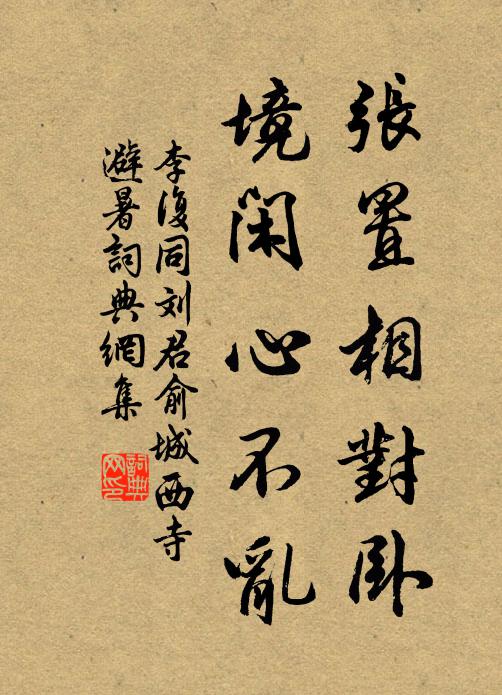 張置相對臥
境閑心不亂
李復同刘君俞城西寺
避暑詞典網集
詞典网印